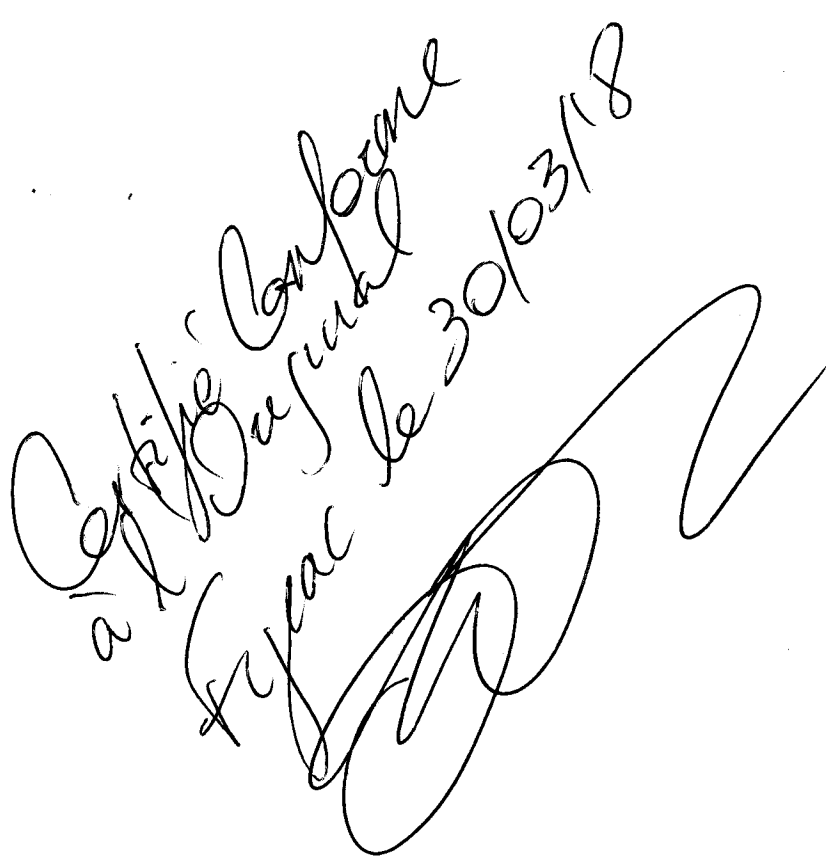 Certifié Conforme
à l'original
Figeac le 30/03/18